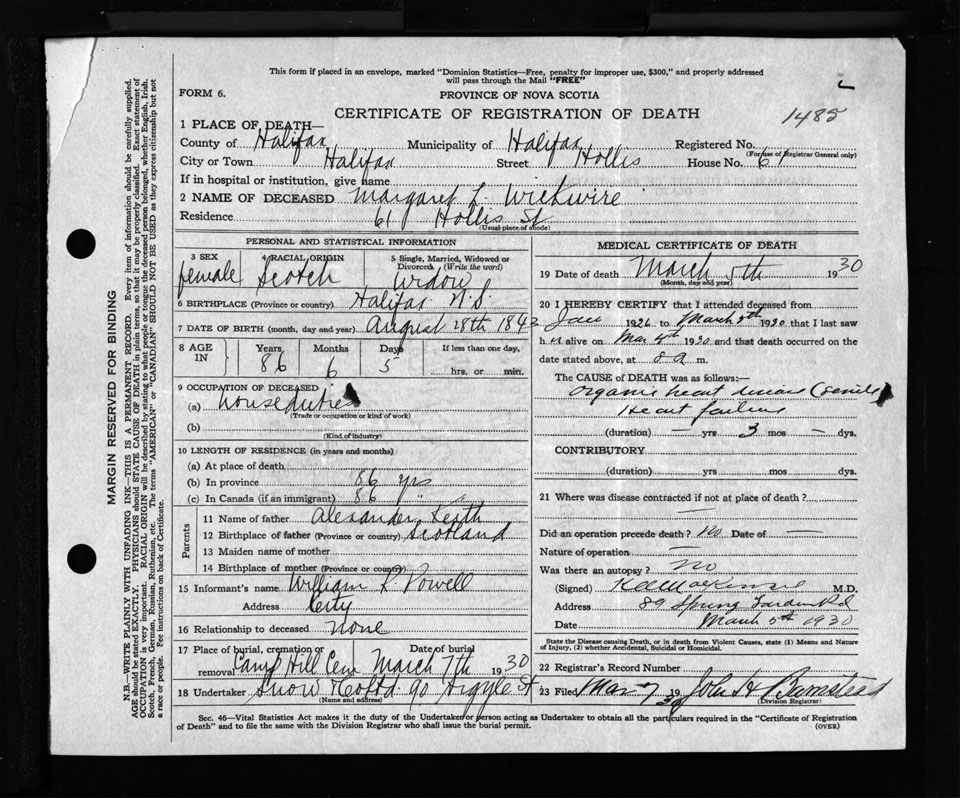 This form if placed in an envelope, marked "Dominion Statistics—Free, penalty for improper use, $300," and properly addressed
will pass through the Mail "FREE"
FORM 6.
PROVINCE OF NOVA SCOTIA
CERTIFICATE OF REGISTRATION OF DEATH
1485
1 PLACE OF DEATH—
County of Halifax Municipality of Halifax Registered No.
(For use of Registrar General only)
City or Town Halifax Street Hollis House No. 61
If in hospital or institution, give name
2 NAME OF DECEASED Margaret L. Wickwire
Residence 61 Hollis St
(Usual place of abode)
PERSONAL AND STATISTICAL INFORMATION
3 SEX female
4 RACIAL ORIGIN Scotch
5 Single, Married, Widowed or Divorced (Write the word) Widow
6 BIRTHPLACE (Province or country) Halifax N.S.
7 DATE OF BIRTH (month, day and year) August 28th 1843
8 AGE IN Years 86 Months 6 Days 5 If less than one day, hrs. or min.
9 OCCUPATION OF DECEASED
(a) houseduties
(Trade or occupation or kind of work)
(b)
(Kind of industry)
10 LENGTH OF RESIDENCE (in years and months)
(a) At place of death
(b) In province 86 yrs
(c) In Canada (if an immigrant) 86 " "
Parents
11 Name of father Alexander Keith
12 Birthplace of father (Province or country) Scotland
13 Maiden name of mother
14 Birthplace of mother (Province or country)
15 Informant's name William R. Powell
Address City
16 Relationship to deceased none
17 Place of burial, cremation or removal Camp Hill Cem Date of burial March 7th 1930
18 Undertaker Snow & Co Ltd. 90 Argyle St
(Name and address)
MEDICAL CERTIFICATE OF DEATH
19 Date of death March 5th 1930
(Month, day and year)
20 I HEREBY CERTIFY that I attended deceased from
Jan 1926 to March 5th 1930 that I last saw
h er alive on Mar 4th 1930 and that death occurred on the
date stated above, at 8 a m.
The CAUSE OF DEATH was as follows:—
Organic heart disease (senile)
Heart failure
(duration) — yrs 3 mos — dys.
CONTRIBUTORY
(duration) yrs. mos. dys.
21 Where was disease contracted if not at place of death?
Did an operation precede death? No Date of —
Nature of operation —
Was there an autopsy? No
(Signed) K A MacKenzie M.D.
Address 89 Spring Garden Rd
Date March 5th 1930
State the Disease causing Death, or in death from Violent Causes, state (1) Means and Nature
of Injury, (2) whether Accidental, Suicidal or Homicidal.
22 Registrar's Record Number
23 Filed Mar 7 1930 John H Barnstead
(Division Registrar)
Sec. 46—Vital Statistics Act makes it the duty of the Undertaker or person acting as Undertaker to obtain all the particulars required in the "Certificate of Registration
of Death" and to file the same with the Division Registrar who shall issue the burial permit.
(OVER)
MARGIN RESERVED FOR BINDING
N.B.—WRITE PLAINLY WITH UNFADING INK—THIS IS A PERMANENT RECORD. Every item of information should be carefully supplied.
AGE should be stated EXACTLY. PHYSICIANS should STATE CAUSE OF DEATH in plain terms, so that it may be properly classified. Exact statement of
OCCUPATION is very important. RACIAL ORIGIN will be described by stating to what people or tongue the deceased person belonged, whether English, Irish,
Scotch, French, German, Russian, Ruthenian, etc. The terms "AMERICAN" or "CANADIAN" SHOULD NOT BE USED as they express citizenship but not
a race or people. See instructions on back of Certificate.